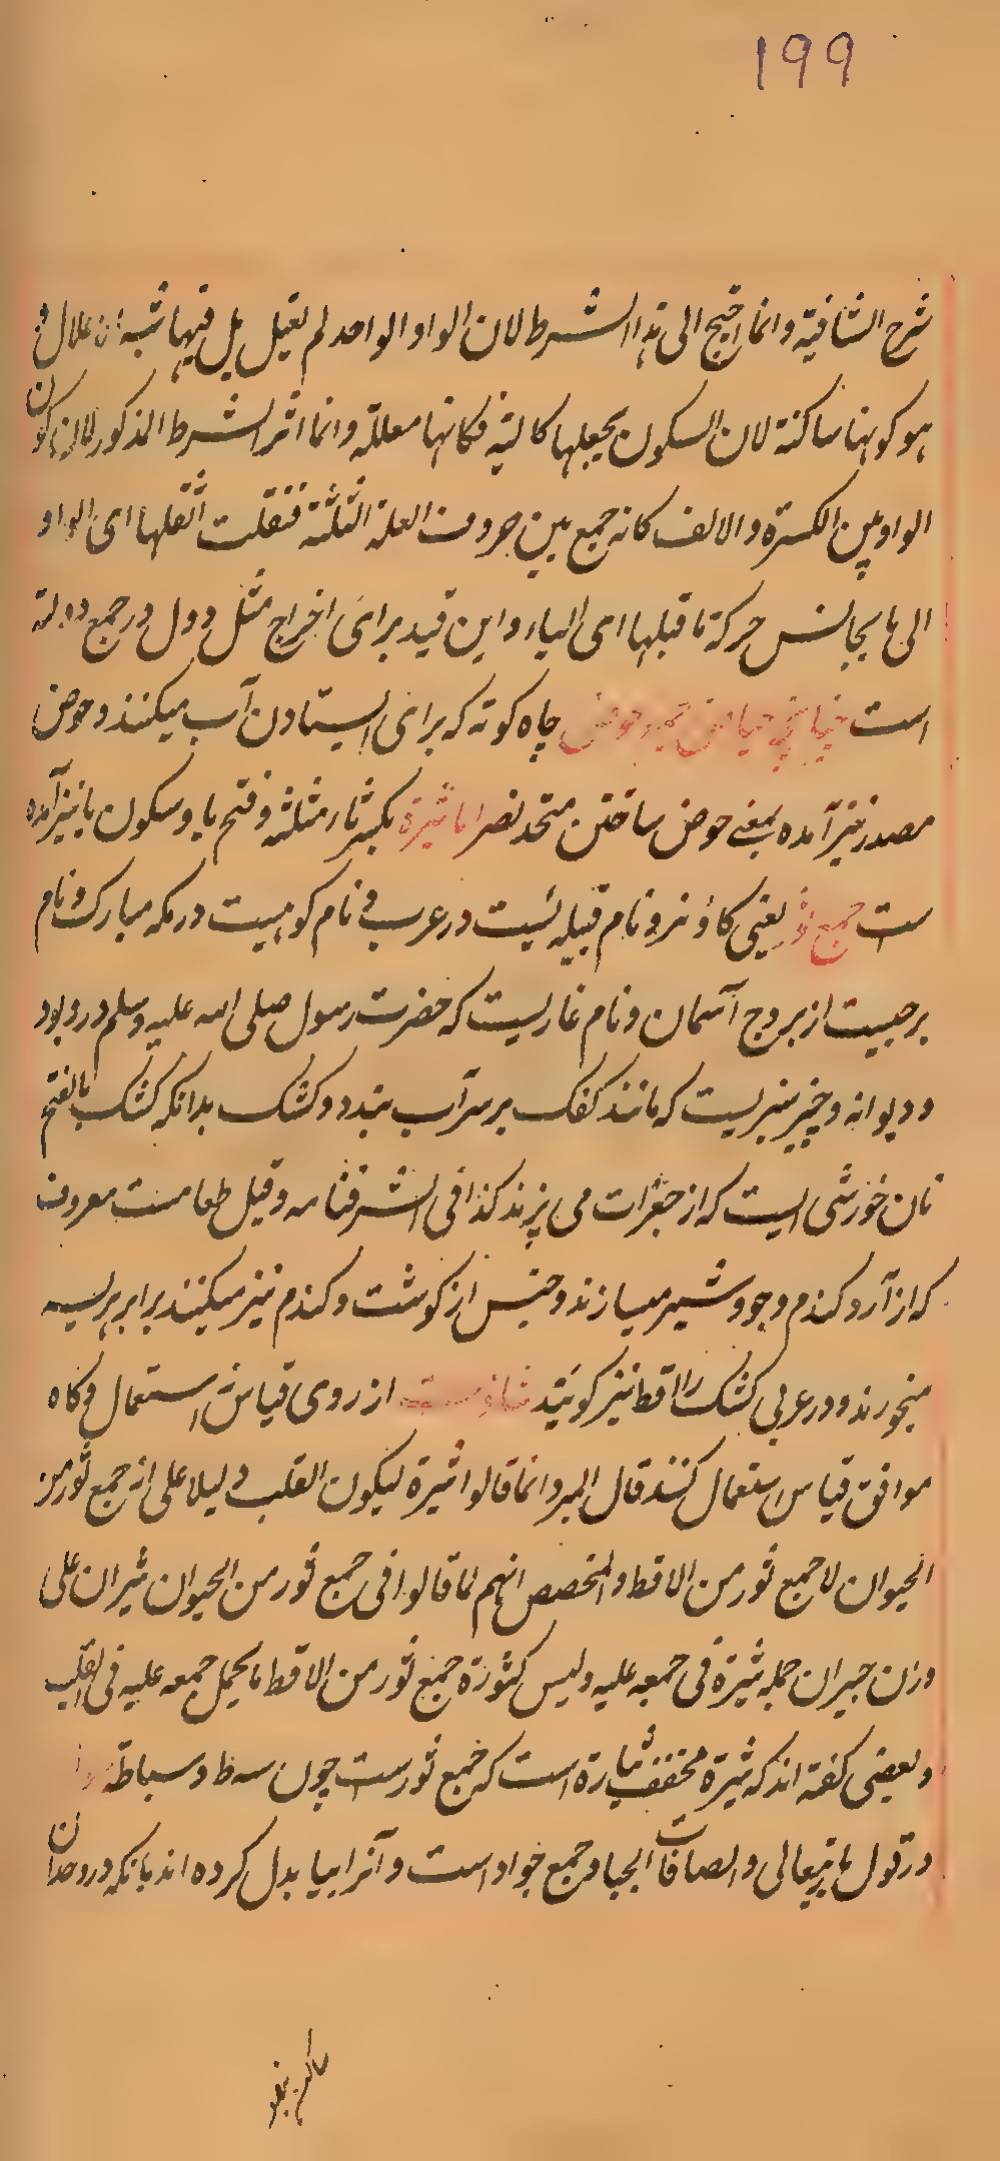 ١٩٩
شرح الشافية وانما احتيج الى هذا الشرط لان الواو الواحد لم يعل بل فيها شبه الاعلال و
هو كونها ساكنة لان السكون يجعلها كالميتة فكانها معللة وانما اثر الشرط المذكور لان كون
الواو بين الكسرة والالف كانه جمع بين حروف العلة الثلثة فتقلب اثقلها اى الواو
الى ما يجانس حركة ما قبلها اى الياء و اين قيد براى اخراج مثل دول در جمع دولة
است چنانچه حياض جمع حوض چاه كوته كه براى ايستادن آب ميكنند و حوض
مصدر نيز آمده بمعنى حوض ساختن متحد نصر اما ثيرة بكسر ثاء مثلثه و فتح يا و سكون يا نيز آمده
ست جمع ثور يعنى كاؤ نر و نام قبيله ئيست در عرب و نام كوهيست در مكه مبارك و نام
برجيست از بروج آسمان و نام غاريست كه حضرت رسول صلى الله عليه وسلم درو بود
و ديوانه و چيز سبزيست كه مانند كفك بر سر آب بندد و كشك بدانكه كشك بالفتح
نان خورشى ايست كه از جغرات مى پزند كذا فى الشرفنامه و قيل طعامست معروف
كه از آرد كندم و جو و شير ميسازند و جنس از كوشت و كندم نيز ميكنند برابر هريسه
ميخورند و در عربى كشك را اقط نيز كويند شاذ ست از روى قياس نه استعمال و كاه
موافق قياس استعمال كنند قال المبرد انما قالوا ثيرة ليكون القلب دليلا على انه جمع ثور من
الحيوان لا جمع ثور من الاقط و المخصص انهم لما قالوا فى جمع ثور من الحيوان ثيران على
وزن جيران حمله ثيرة فى جمعه عليه وليس كثورة جمع ثور من الاقط ما يحمل جمعه عليه فى القلب
و بعضى كفته اند كه ثيرة مخفف ثيارة است كه جمع ثورست چون سط و سباطة
در قول باريتعالى والصافات الجياد جمع جواد است و آنرا بيا بدل كرده اند بانكه در وحدان